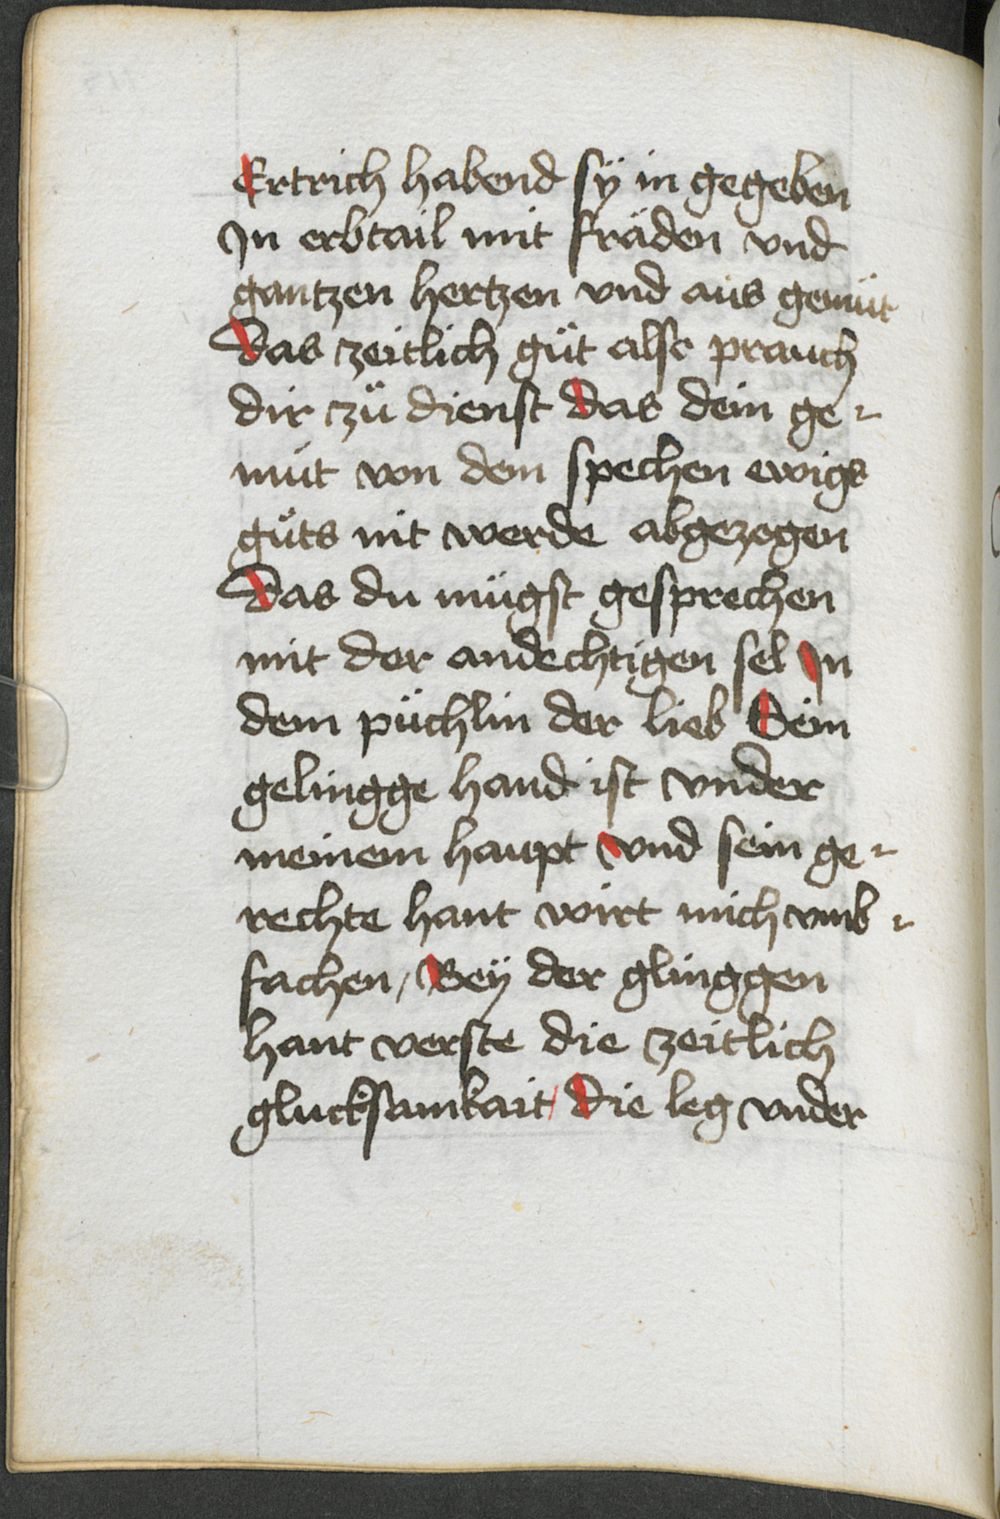 Ertrich habend sÿ in gegeben
In erbtail mit fräden vnd
gantzen hertzen vnd aus gemüt
Das zeitlich güt also prauch
dir zü dienst Das dein ge-
müt von dem spechen ewigs
güts nit werde abgezogen
Das du mügst gesprechen
mit der andechtigen sel In
dem püchlin der lieb Sein
gelingge hand ist vnder
meinem haupt Vnd sein ge-
rechte hant wirt mich vmb-
fachen / Bey der glinggen
hant verste die zeitlich
glucksamkait / Die leg vnder